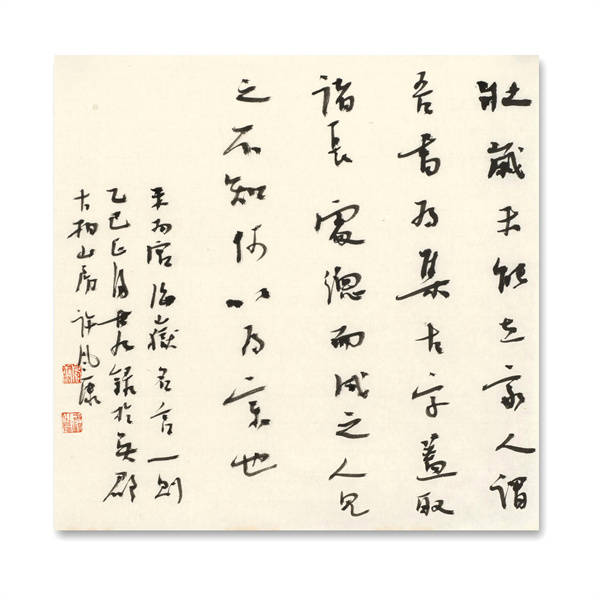 壯歲未能立家人謂
吾書为集古字蓋取
諸長處總而成之人见
之不知何以为宗也
米南宫海嶽名言一則
乙巳正月廿九録於吴郡
古柏山房許风康